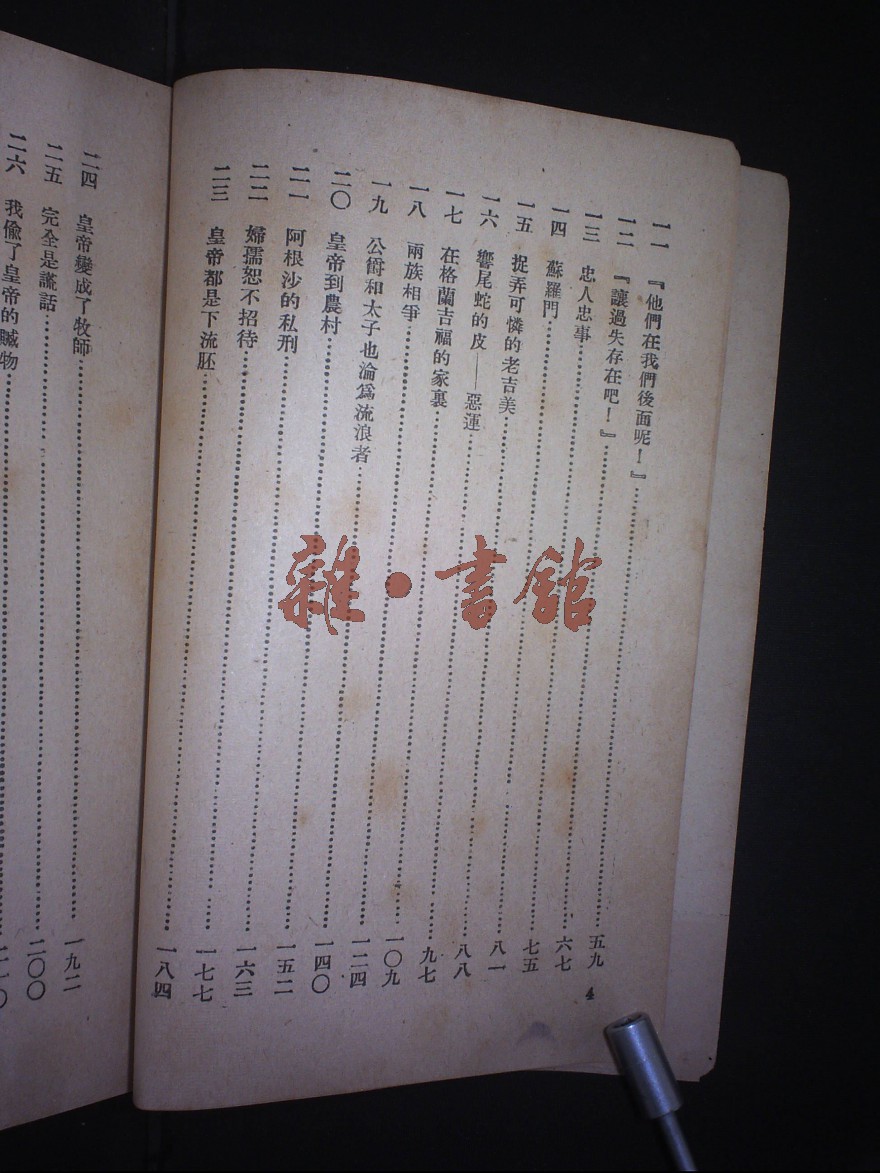 一一 『他們在我們後面呢！』……五九
一二 『讓過失存在吧！』……六七
一三 忠人忠事……七五
一四 蘇羅門……八一
一五 捉弄可憐的老吉美……八八
一六 響尾蛇的皮——惡運……九七
一七 在格蘭吉福的家裏……一〇九
一八 兩族相爭……一二四
一九 公爵和太子也淪爲流浪者……一四〇
二〇 皇帝到農村……一五二
二一 阿根沙的私刑……一六三
二二 婦孺恕不招待……一七七
二三 皇帝都是下流胚……一八四
4
二四 皇帝變成了牧師……一九二
二五 完全是謊話……二〇〇
二六 我偸了皇帝的贓物……二一〇
雜·書館